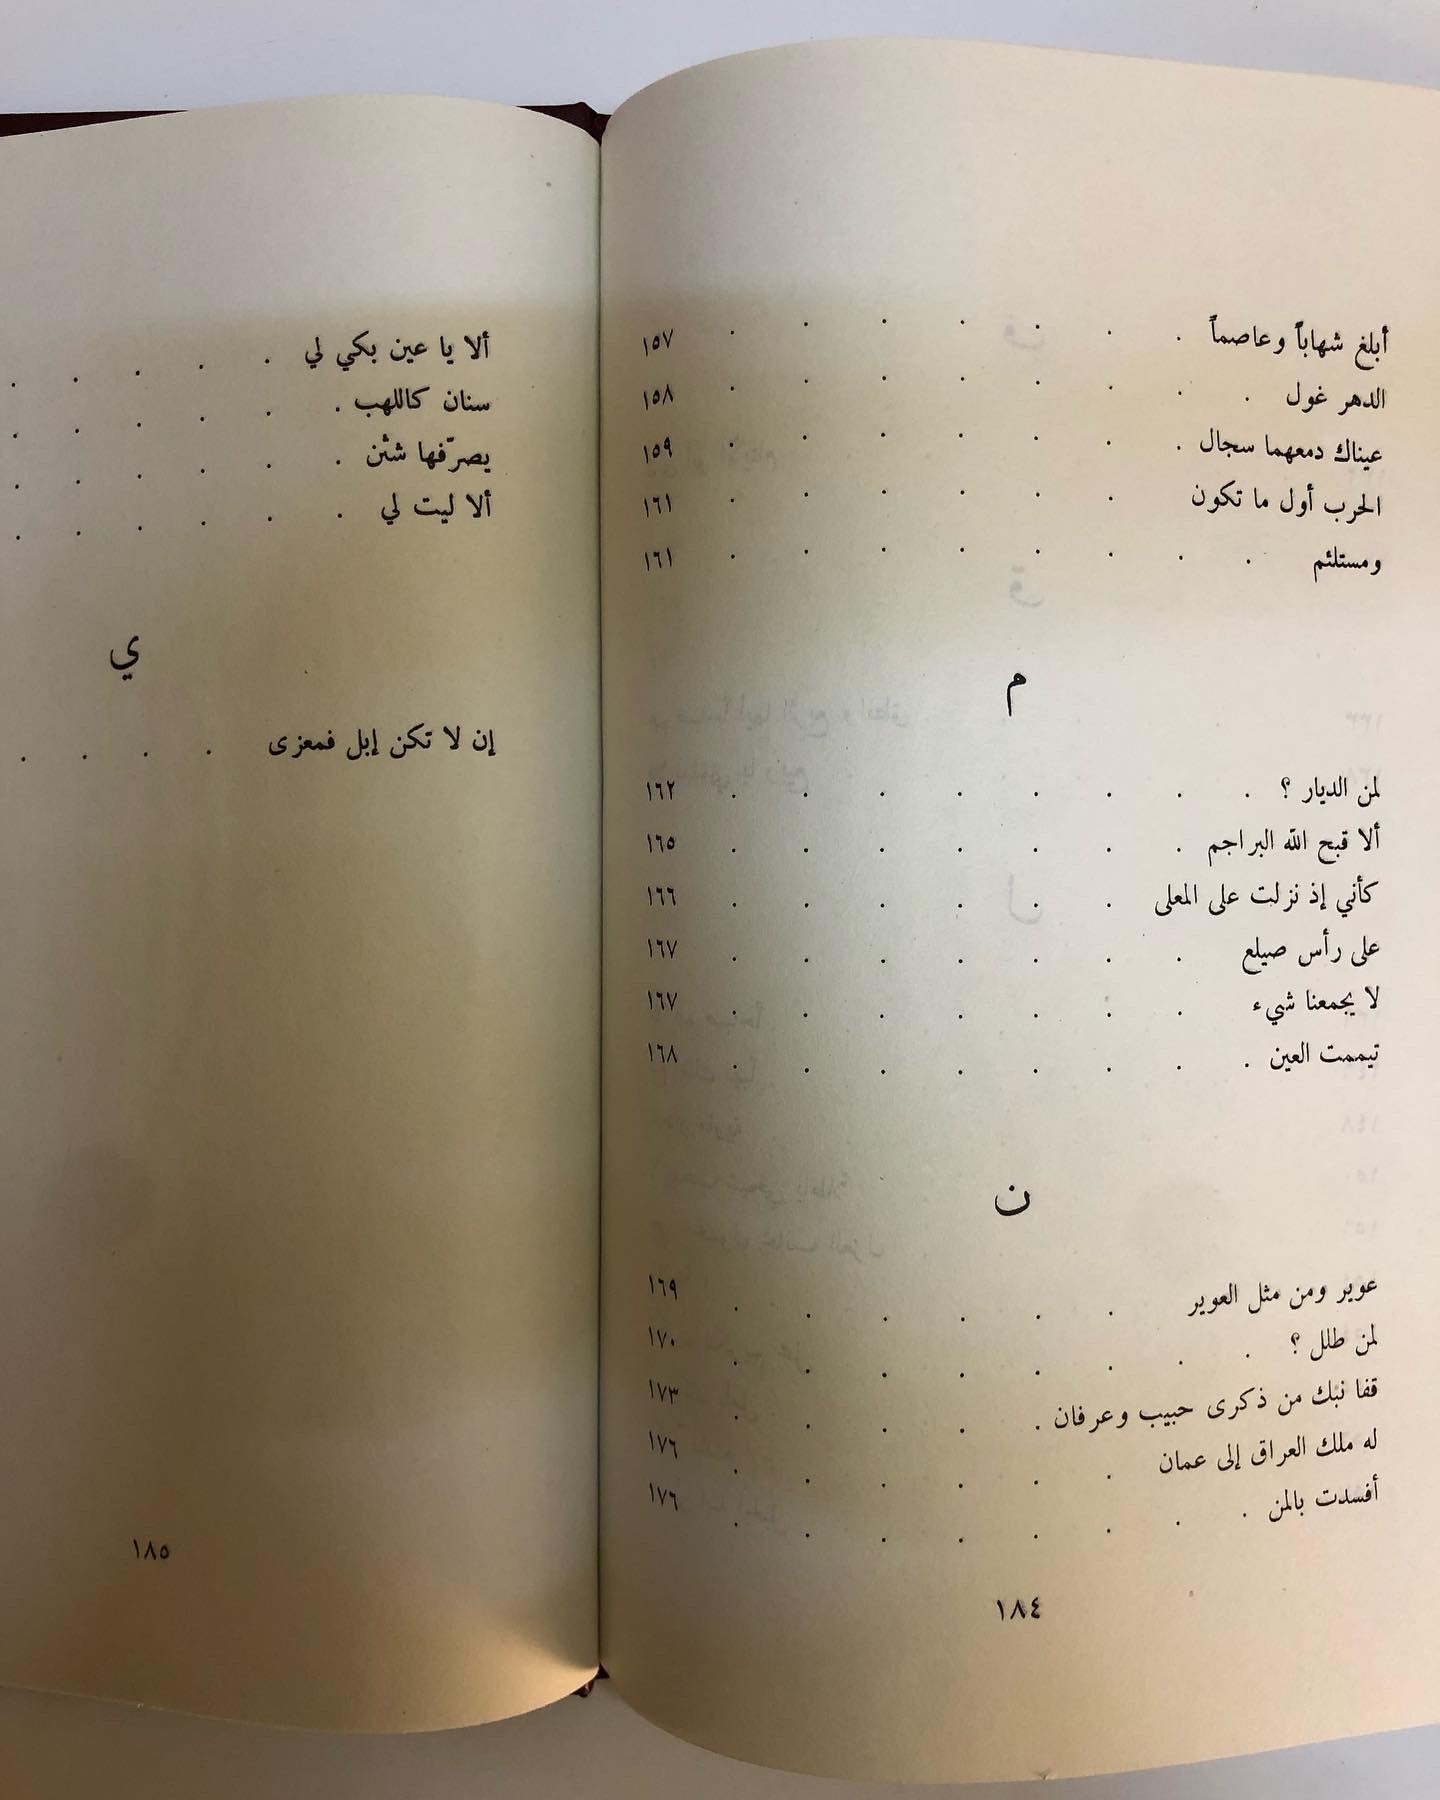 أبلغ شهاباً وعاصماً . . . . . . . ١٥٧
الدهر غول . . . . . . . . ١٥٨
عيناك دمعهما سجال . . . . . . . ١٥٩
الحرب أول ما تكون . . . . . . ١٦١
ومستلئم . . . . . . . . ١٦١
م
لمن الديار ؟ . . . . . . . . ١٦٢
ألا قبح الله البراجم . . . . . . . ١٦٥
كأني إذ نزلت على المعلى . . . . . . ١٦٦
على رأس صيلع . . . . . . . ١٦٧
لا يجمعنا شيء . . . . . . . ١٦٧
تيممت العين . . . . . . . . ١٦٨
ن
عوير ومن مثل العوير . . . . . . ١٦٩
لمن طلل ؟ . . . . . . . . ١٧٠
قفا نبك من ذكرى حبيب وعرفان . . . . . ١٧٣
له ملك العراق إلى عمان . . . . . . ١٧٦
أفسدت بالمن . . . . . . . . ١٧٦
١٨٤
ألا يا عين بكي لي . . . . .
سنان كاللهب . . . . . .
يصرّفها شثن . . . . . .
ألا ليت لي . . . . . .
ي
إن لا تكن إبل فمعزى . . . .
١٨٥